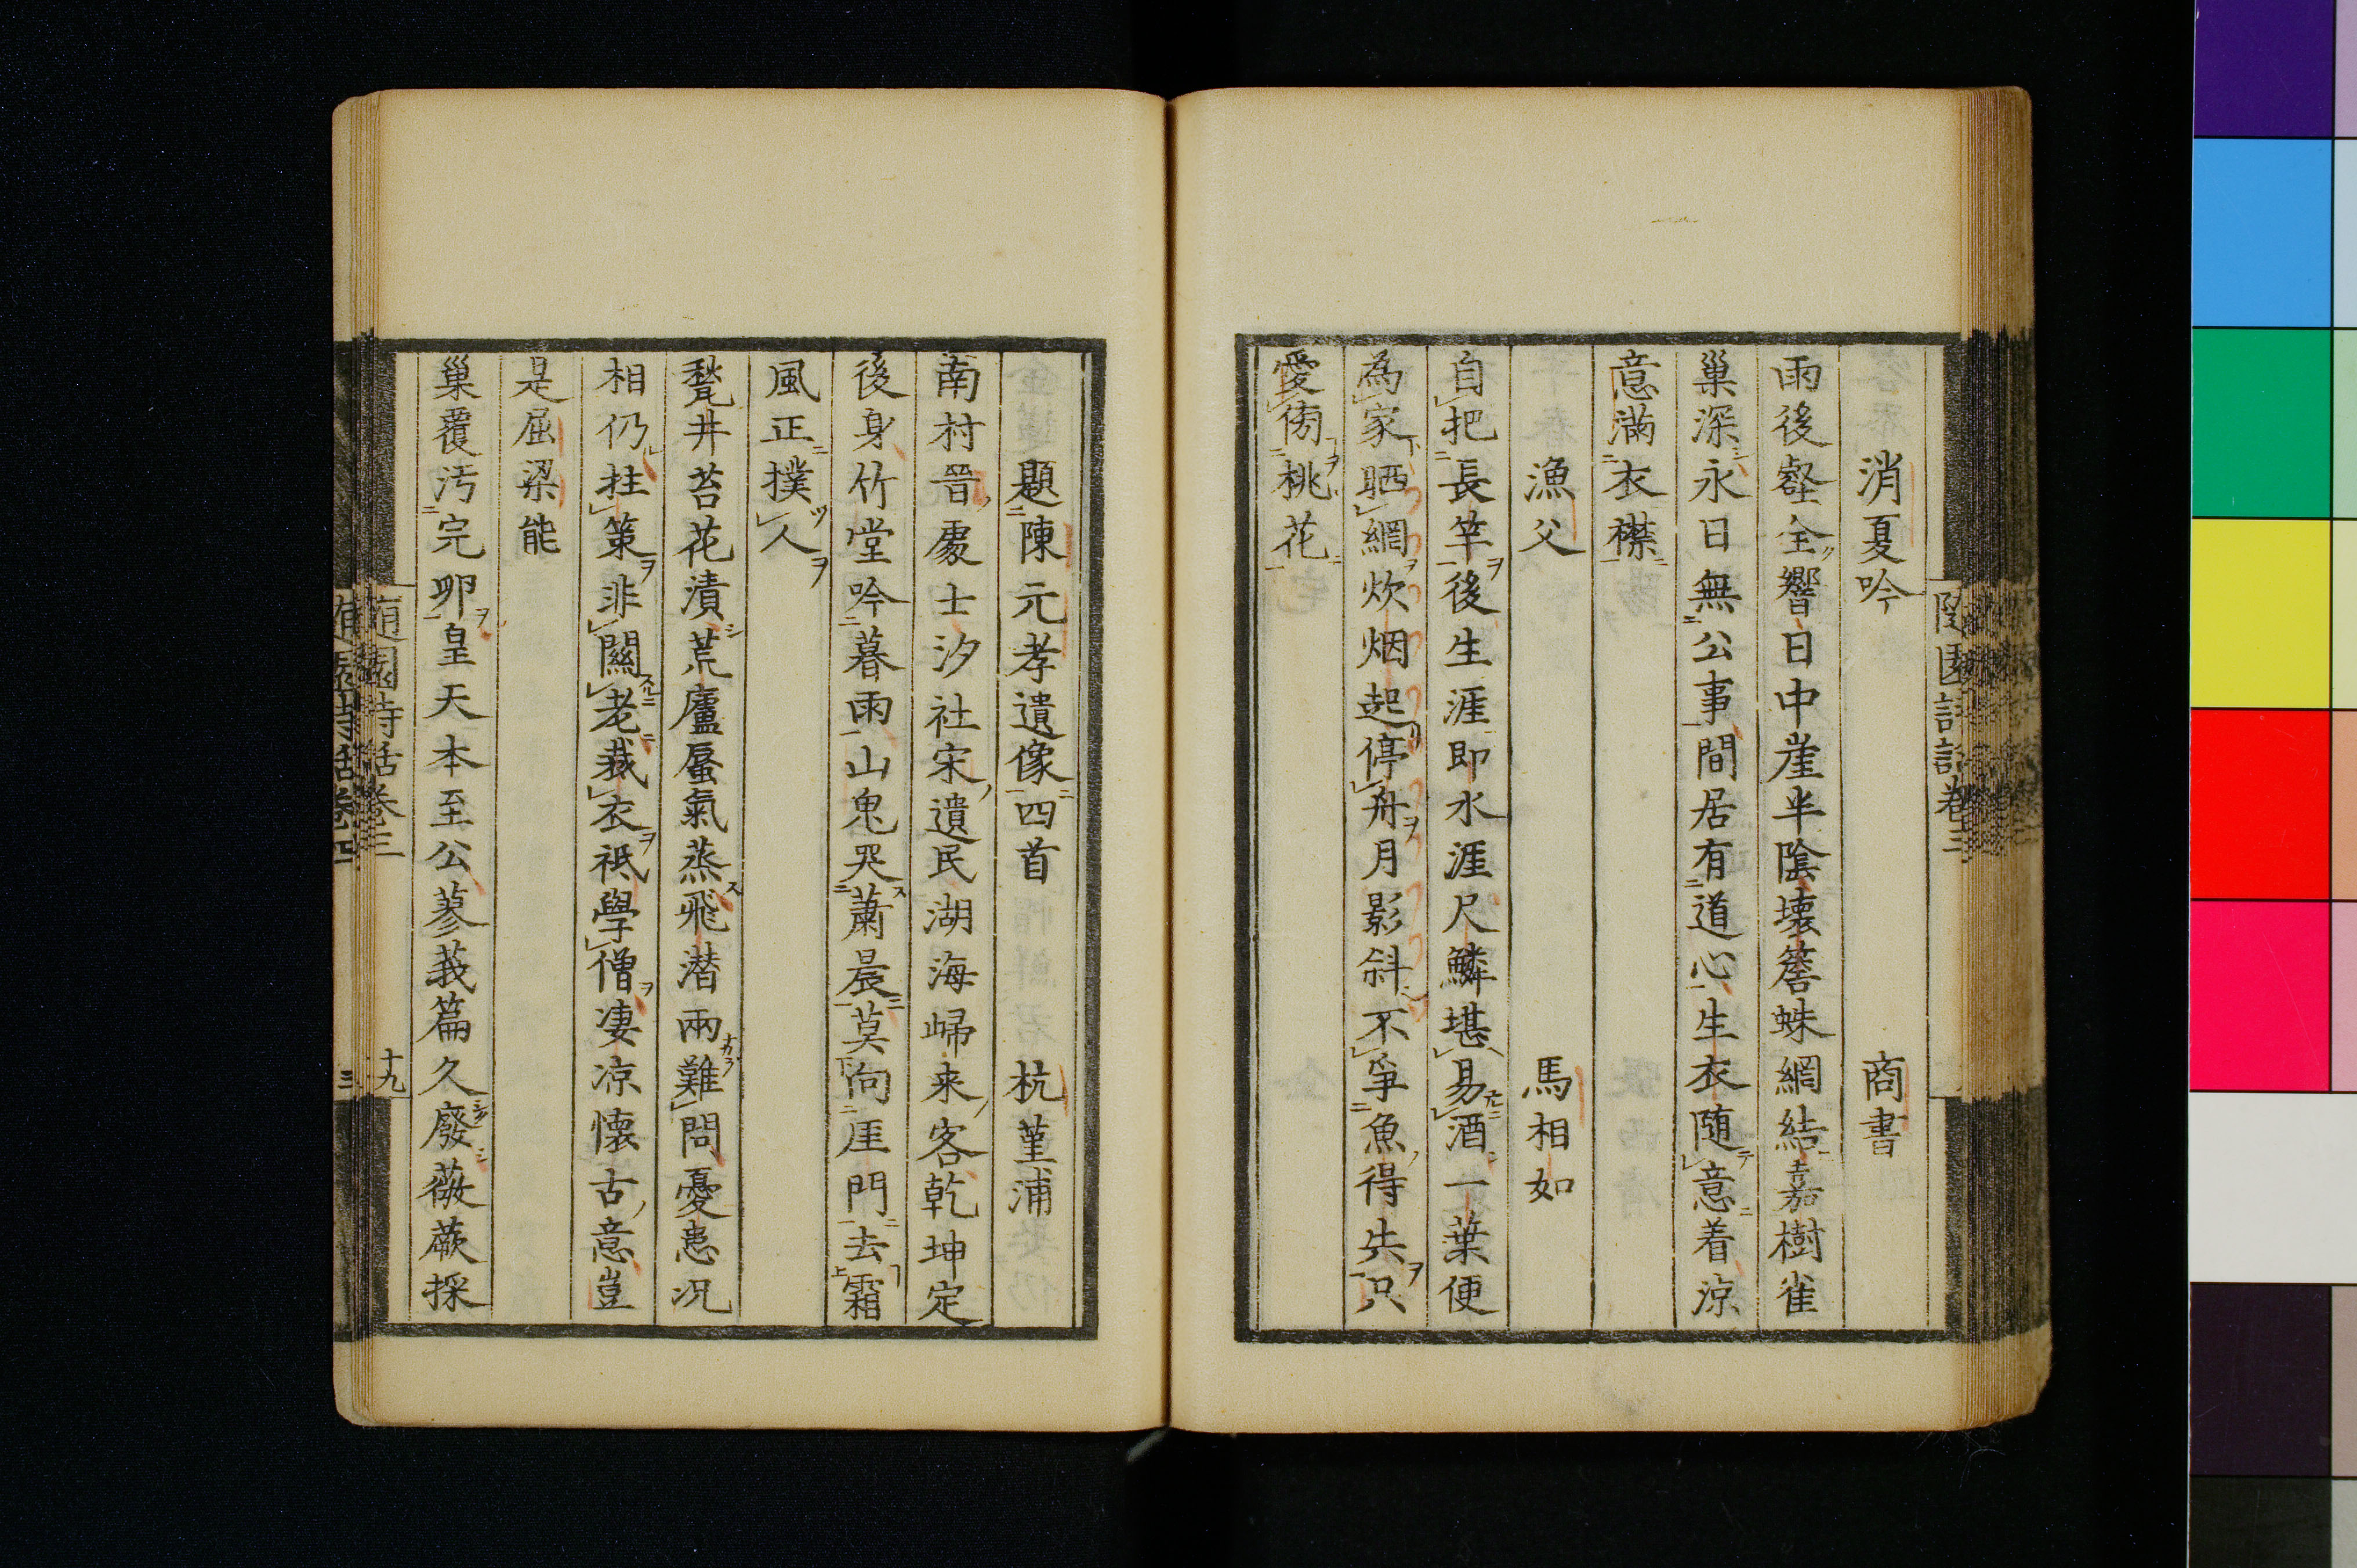 消夏吟 商書
雨後壑全響日中崖半陰壊簷蛛網結嘉樹雀
巣深永日無公事間居有道心生衣随意着涼
意滿衣襟
漁父 馬相如
自把長竿後生涯即水涯尺鱗堪易酒一葉便
為家晒網炊烟起停舟月影斜不爭魚得失只
愛傍桃花
題陳元孝遺像四首 杭堇浦
南村晉處士汐社宋遺民湖海歸来客乾坤定
後身竹堂吟暮雨山鬼哭蕭晨莫向厓門去霜
風正撲人
甃井苔花漬荒廬蜃氣蒸飛潜兩難問憂患况
相仍拄策非關老裁衣祇學僧凄涼懐古意豈
是屈梁能
巣覆汚完卵皇天本至公蓼莪篇久廢薇蕨採
随園詩話巻三 十九